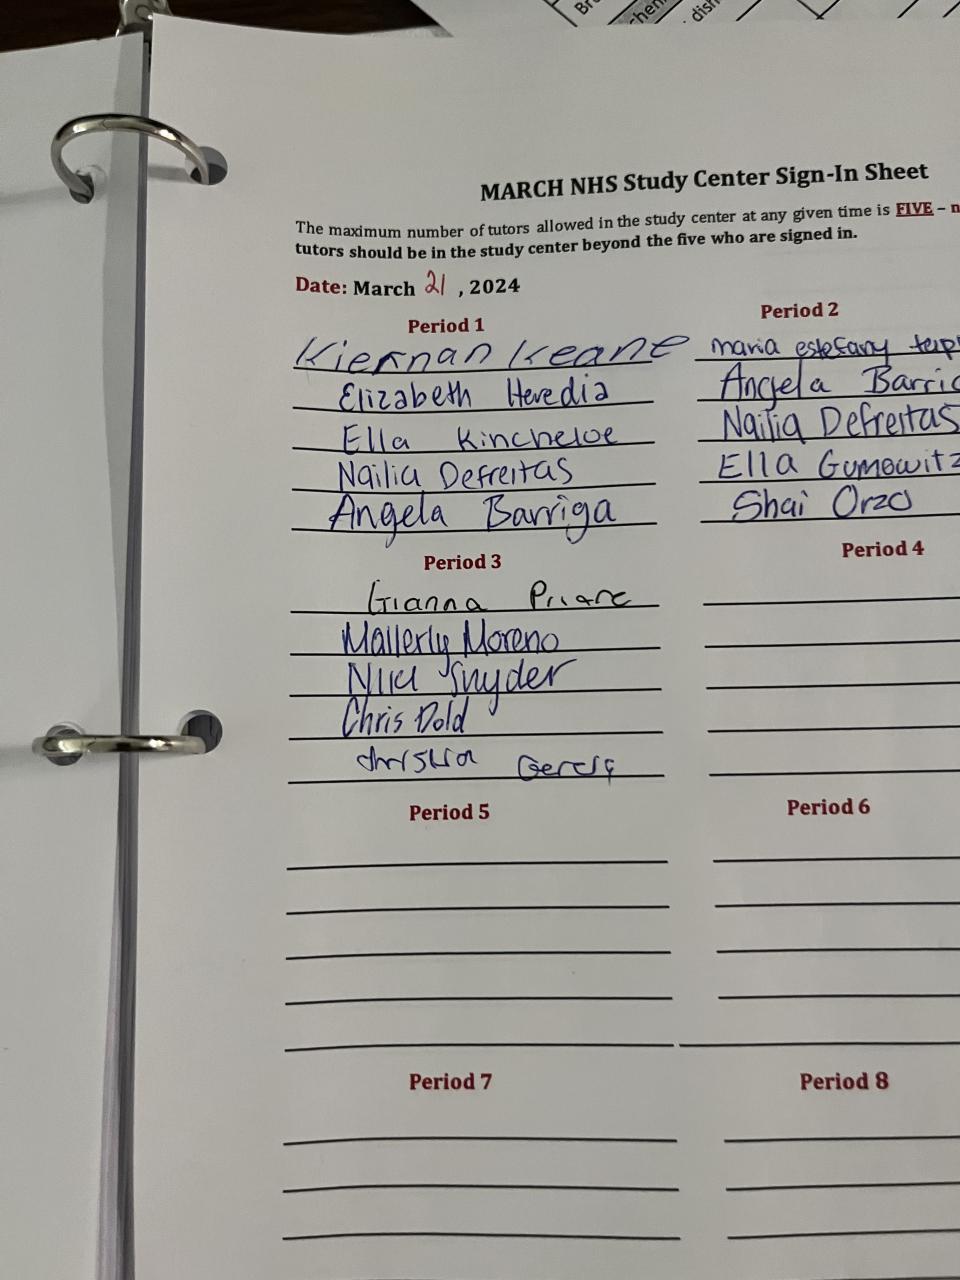 Br
chen
dish
MARCH NHS Study Center Sign-In Sheet
The maximum number of tutors allowed in the study center at any given time is FIVE – n
tutors should be in the study center beyond the five who are signed in.
Date: March 21, 2024
Period 1
Kiernan Keane
Elizabeth Heredia
Ella Kincheloe
Nailia Defreitas
Angela Barriga
Period 2
maria estefany
Angela Barrig
Nailia Defreitas
Ella Gumowitz
Shai Orzo
Period 3
Gianna
Mallerly Moreno
Snyder
Chris Dold
Period 4
Period 5
Period 6
Period 7
Period 8